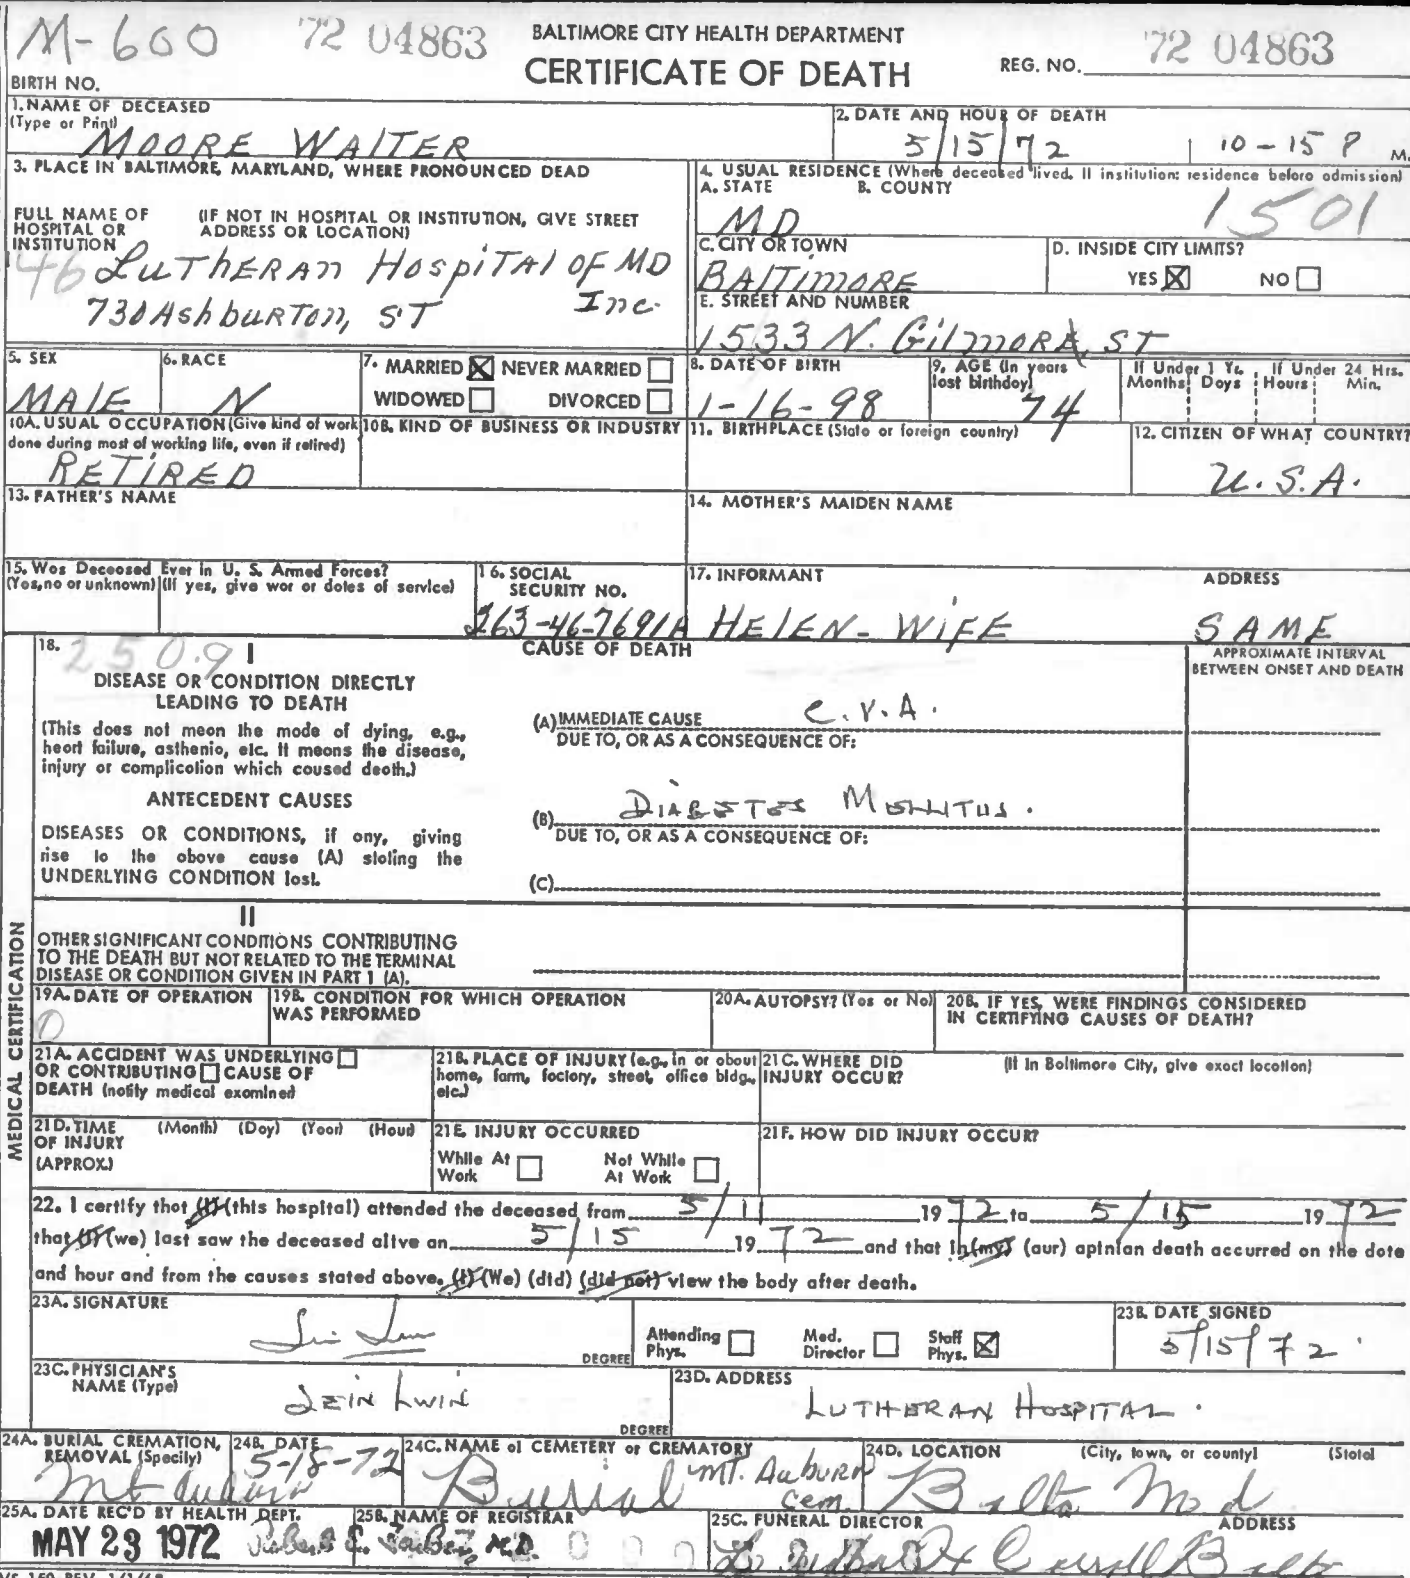 M-600 72 04863 BALTIMORE CITY HEALTH DEPARTMENT 72 04863
CERTIFICATE OF DEATH REG. NO.
BIRTH NO.
1. NAME OF DECEASED
(Type or Print)
MOORE WALTER
2. DATE AND HOUR OF DEATH
5/15/72 10-15 P M.
3. PLACE IN BALTIMORE, MARYLAND, WHERE PRONOUNCED DEAD
FULL NAME OF HOSPITAL OR INSTITUTION
(IF NOT IN HOSPITAL OR INSTITUTION, GIVE STREET
ADDRESS OR LOCATION)
46 LUTHERAN HOSPITAL OF MD
Inc.
730 Ashburton, ST
4. USUAL RESIDENCE (Where deceased lived. If institution: residence before admission)
A. STATE B. COUNTY
MD 1501
C. CITY OR TOWN D. INSIDE CITY LIMITS?
BALTIMORE YES NO
E. STREET AND NUMBER
1533 N. GILMORE ST
5. SEX
MALE
6. RACE
N
7. MARRIED NEVER MARRIED
WIDOWED DIVORCED
8. DATE OF BIRTH
1-16-98
9. AGE (in years
last birthday)
74
If Under 1 Yr. If Under 24 Hrs.
Months Days Hours Min.
10A. USUAL OCCUPATION (Give kind of work
done during most of working life, even if retired)
RETIRED
10B. KIND OF BUSINESS OR INDUSTRY
11. BIRTHPLACE (State or foreign country)
12. CITIZEN OF WHAT COUNTRY?
U.S.A.
13. FATHER'S NAME
14. MOTHER'S MAIDEN NAME
15. Was Deceased Ever in U. S. Armed Forces?
(Yes, no or unknown) (If yes, give war or dates of service)
16. SOCIAL
SECURITY NO.
263-46-7691A
17. INFORMANT ADDRESS
HELEN - WIFE SAME
18. 250.9 I
DISEASE OR CONDITION DIRECTLY
LEADING TO DEATH
(This does not mean the mode of dying, e.g.,
heart failure, asthenia, etc. It means the disease,
injury or complication which caused death.)
ANTECEDENT CAUSES
DISEASES OR CONDITIONS, if any, giving
rise to the above cause (A) stating the
UNDERLYING CONDITION last.
CAUSE OF DEATH
APPROXIMATE INTERVAL
BETWEEN ONSET AND DEATH
(A) IMMEDIATE CAUSE C.V.A.
DUE TO, OR AS A CONSEQUENCE OF:
(B) DIABETES MELLITUS.
DUE TO, OR AS A CONSEQUENCE OF:
(C)
II
OTHER SIGNIFICANT CONDITIONS CONTRIBUTING
TO THE DEATH BUT NOT RELATED TO THE TERMINAL
DISEASE OR CONDITION GIVEN IN PART 1 (A).
MEDICAL CERTIFICATION
19A. DATE OF OPERATION
0
19B. CONDITION FOR WHICH OPERATION
WAS PERFORMED
20A. AUTOPSY? (Yes or No)
20B. IF YES, WERE FINDINGS CONSIDERED
IN CERTIFYING CAUSES OF DEATH?
21A. ACCIDENT WAS UNDERLYING
OR CONTRIBUTING CAUSE OF
DEATH (notify medical examiner)
21B. PLACE OF INJURY (e.g., in or about
home, farm, factory, street, office bldg.,
etc.)
21C. WHERE DID
INJURY OCCUR?
(If in Baltimore City, give exact location)
21D. TIME (Month) (Day) (Year) (Hour)
OF INJURY
(APPROX.)
21E. INJURY OCCURRED
While At Work Not While At Work
21F. HOW DID INJURY OCCUR?
22. I certify that (I) (this hospital) attended the deceased from 5/11 1972 to 5/15 1972
that (I) (we) last saw the deceased alive on 5/15 1972 and that in (my) (our) opinion death accurred on the date
and hour and from the causes stated above. (I) (We) (did) (did not) view the body after death.
23A. SIGNATURE
DEGREE
Attending Phys. Med. Director Staff Phys.
23B. DATE SIGNED
5/15/72
23C. PHYSICIAN'S
NAME (Type)
ZEIN LWIN
DEGREE
23D. ADDRESS
LUTHERAN HOSPITAL.
24A. BURIAL CREMATION,
REMOVAL (Specify)
Mt Auburn
24B. DATE
5-18-72
24C. NAME of CEMETERY or CREMATORY
Burial MT. AuBURN
Cem.
24D. LOCATION (City, town, or county) (State)
Balto Md
25A. DATE REC'D BY HEALTH DEPT.
MAY 23 1972
25B. NAME OF REGISTRAR
Robert E. Farber, M.D.
25C. FUNERAL DIRECTOR ADDRESS
Balto
VS 150 REV. 1/1/68